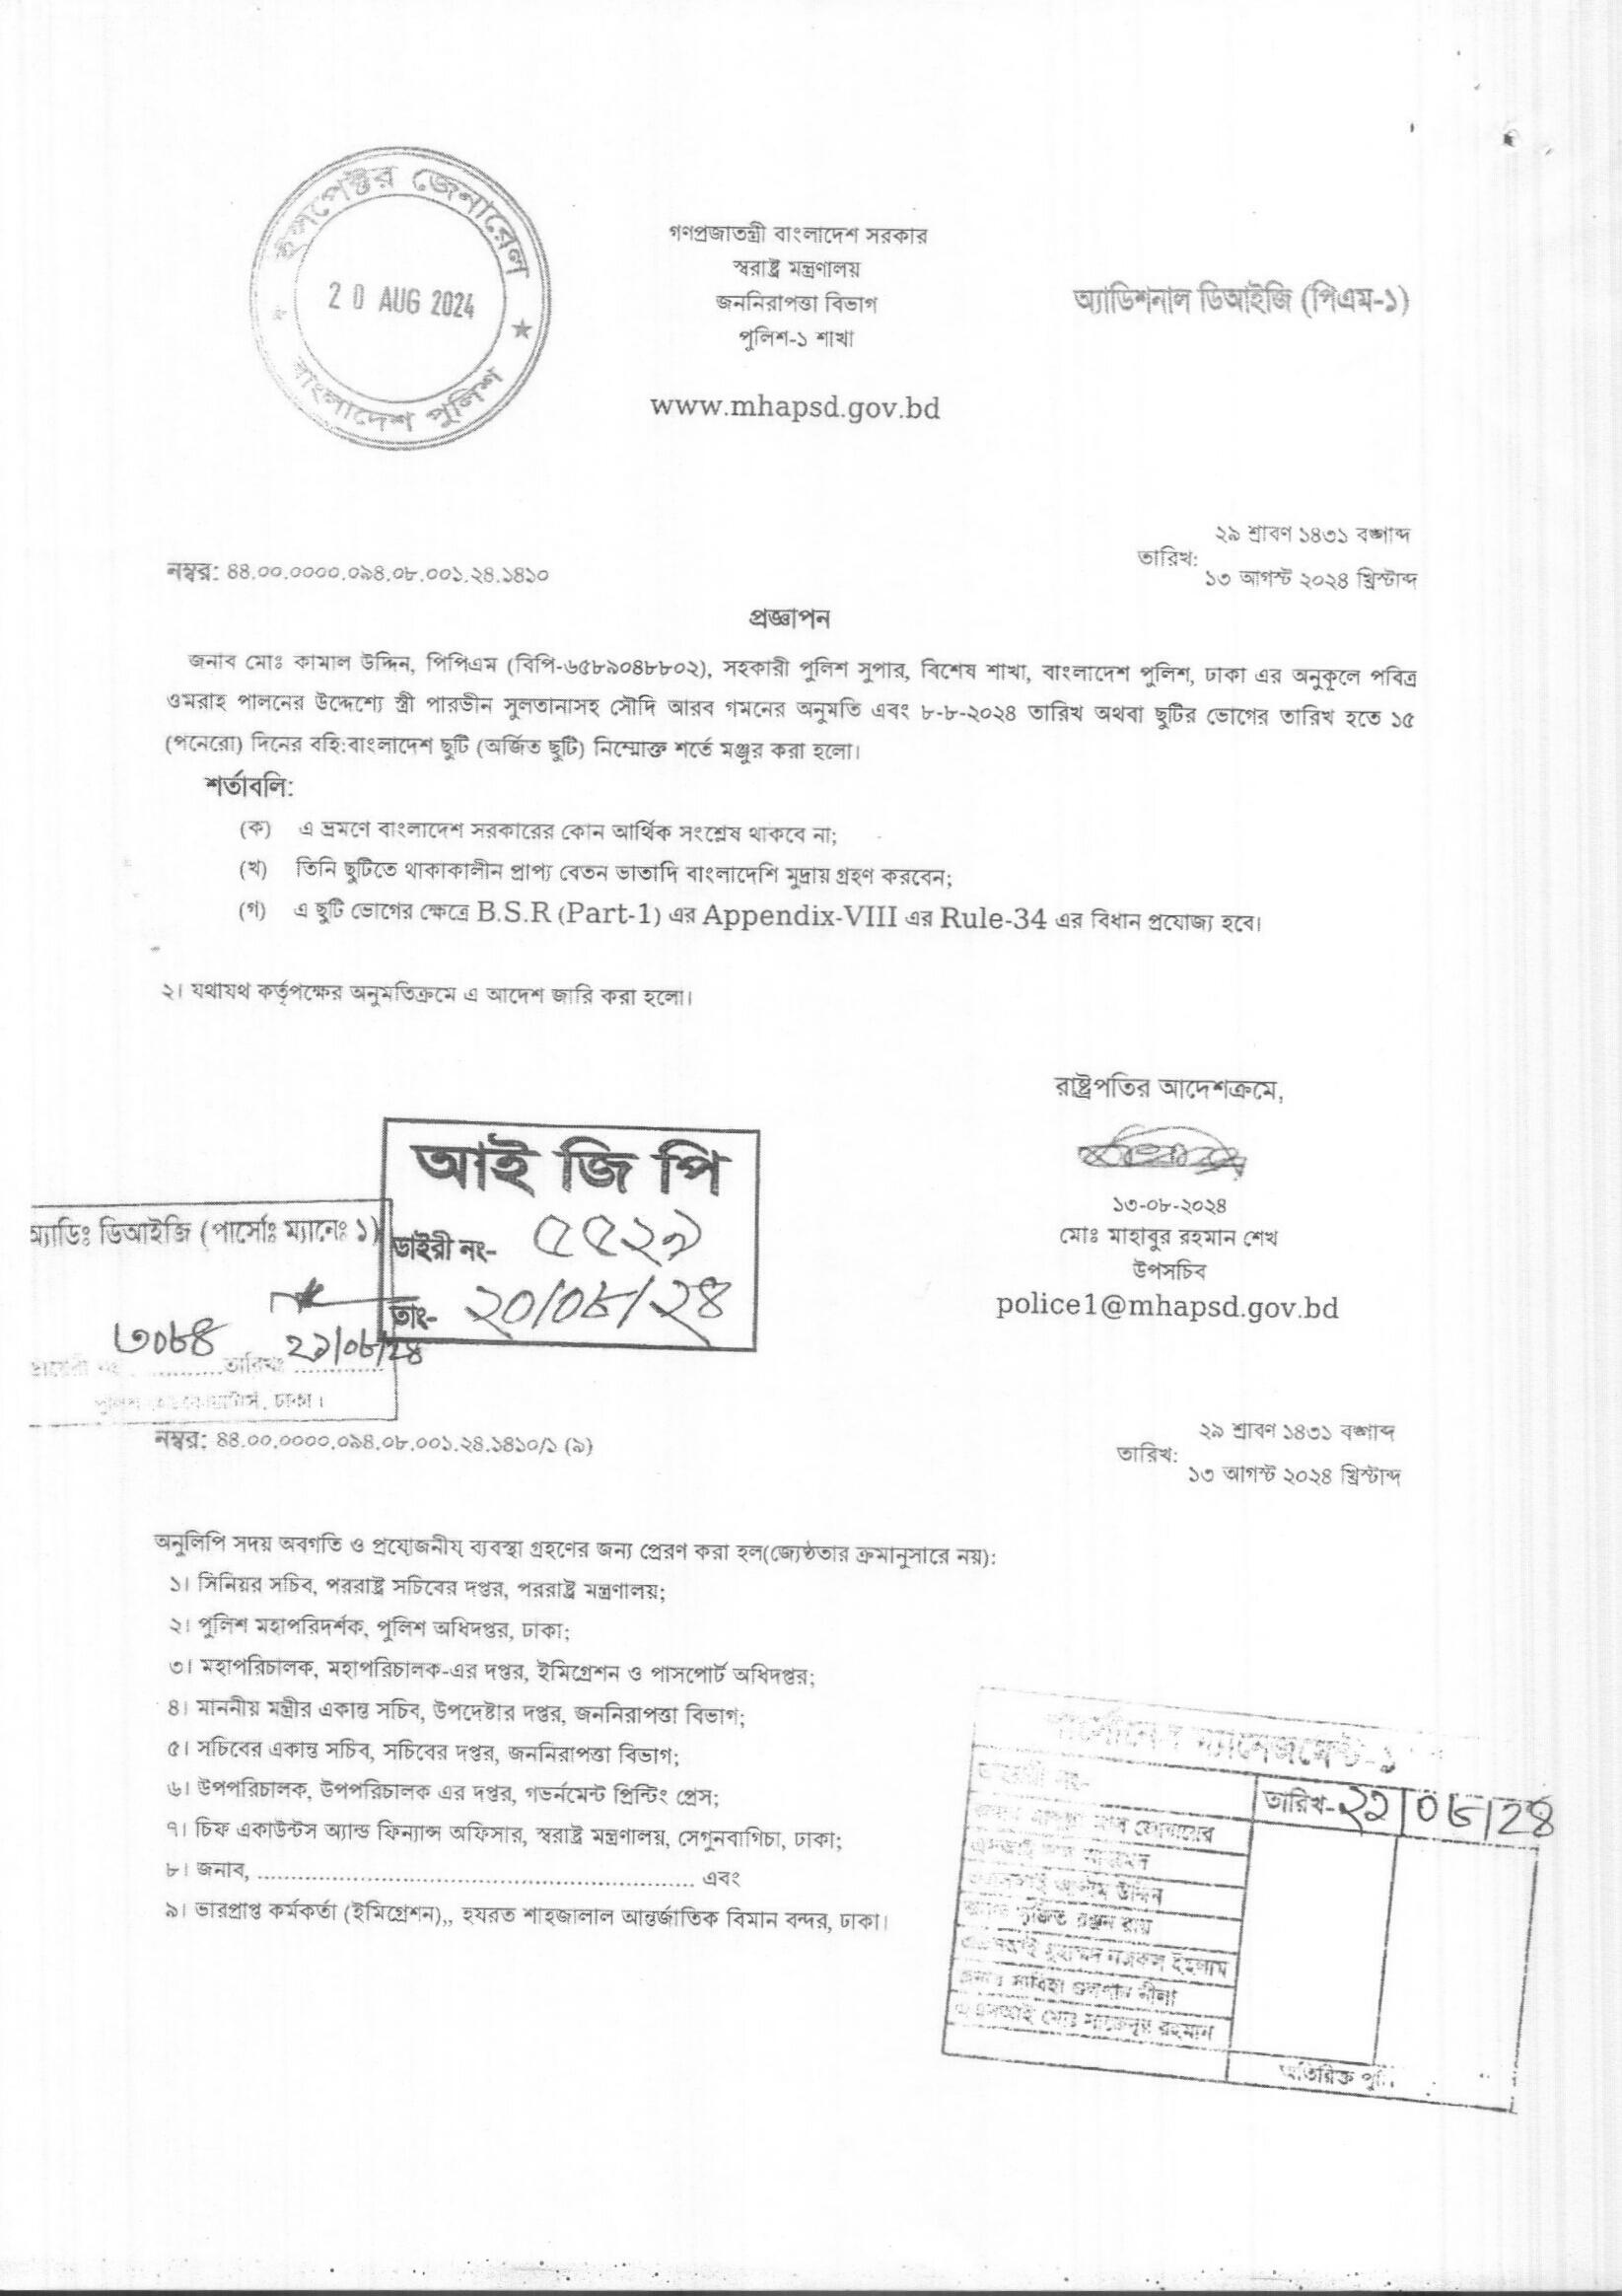 ইন্সপেক্টর জেনারেল
20 AUG 2024
বাংলাদেশ পুলিশ
গণপ্রজাতন্ত্রী বাংলাদেশ সরকার
স্বরাষ্ট্র মন্ত্রণালয়
জননিরাপত্তা বিভাগ
পুলিশ-১ শাখা
www.mhapsd.gov.bd
অ্যাডিশনাল ডিআইজি (পিএম-১)
নম্বর: ৪৪.০০.০০০০.০৯৪.০৮.০০১.২৪.১৪১০
তারিখ:
২৯ শ্রাবণ ১৪৩১ বঙ্গাব্দ
১৩ আগস্ট ২০২৪ খ্রিস্টাব্দ
প্রজ্ঞাপন
জনাব মোঃ কামাল উদ্দিন, পিপিএম (বিপি-৬৫৮৯০৪৮৮০২), সহকারী পুলিশ সুপার, বিশেষ শাখা, বাংলাদেশ পুলিশ, ঢাকা এর অনুকূলে পবিত্র
ওমরাহ পালনের উদ্দেশ্যে স্ত্রী পারভীন সুলতানাসহ সৌদি আরব গমনের অনুমতি এবং ৮-৮-২০২৪ তারিখ অথবা ছুটির ভোগের তারিখ হতে ১৫
(পনেরো) দিনের বহি:বাংলাদেশ ছুটি (অর্জিত ছুটি) নিম্মোক্ত শর্তে মঞ্জুর করা হলো।
শর্তাবলি:
(ক) এ ভ্রমণে বাংলাদেশ সরকারের কোন আর্থিক সংশ্লেষ থাকবে না;
(খ) তিনি ছুটিতে থাকাকালীন প্রাপ্য বেতন ভাতাদি বাংলাদেশি মুদ্রায় গ্রহণ করবেন;
(গ) এ ছুটি ভোগের ক্ষেত্রে B.S.R (Part-1) এর Appendix-VIII এর Rule-34 এর বিধান প্রযোজ্য হবে।
২। যথাযথ কর্তৃপক্ষের অনুমতিক্রমে এ আদেশ জারি করা হলো।
রাষ্ট্রপতির আদেশক্রমে,
১৩-০৮-২০২৪
মোঃ মাহাবুর রহমান শেখ
উপসচিব
police1@mhapsd.gov.bd
আই জি পি
ডাইরী নং- ৫৫২৯
তাং- ২০/০৮/২৪
অ্যাডিঃ ডিআইজি (পার্সোঃ ম্যানেঃ ১)
৩০৮৪ তারিখঃ ২১/০৮/২৪
ঢাকা।
নম্বর: ৪৪.০০.০০০০.০৯৪.০৮.০০১.২৪.১৪১০/১ (৯)
তারিখ:
২৯ শ্রাবণ ১৪৩১ বঙ্গাব্দ
১৩ আগস্ট ২০২৪ খ্রিস্টাব্দ
অনুলিপি সদয় অবগতি ও প্রযোজনীয় ব্যবস্থা গ্রহণের জন্য প্রেরণ করা হল(জ্যেষ্ঠতার ক্রমানুসারে নয়):
১। সিনিয়র সচিব, পররাষ্ট্র সচিবের দপ্তর, পররাষ্ট্র মন্ত্রণালয়;
২। পুলিশ মহাপরিদর্শক, পুলিশ অধিদপ্তর, ঢাকা;
৩। মহাপরিচালক, মহাপরিচালক-এর দপ্তর, ইমিগ্রেশন ও পাসপোর্ট অধিদপ্তর;
৪। মাননীয় মন্ত্রীর একান্ত সচিব, উপদেষ্টার দপ্তর, জননিরাপত্তা বিভাগ;
৫। সচিবের একান্ত সচিব, সচিবের দপ্তর, জননিরাপত্তা বিভাগ;
৬। উপপরিচালক, উপপরিচালক এর দপ্তর, গভর্নমেন্ট প্রিন্টিং প্রেস;
৭। চিফ একাউন্টস অ্যান্ড ফিন্যান্স অফিসার, স্বরাষ্ট্র মন্ত্রণালয়, সেগুনবাগিচা, ঢাকা;
৮। জনাব, ............................................................ এবং
৯। ভারপ্রাপ্ত কর্মকর্তা (ইমিগ্রেশন),, হযরত শাহজালাল আন্তর্জাতিক বিমান বন্দর, ঢাকা।
ম্যানেজমেন্ট-১
তারিখ- ২১/০৮/২৪
উদ্দিন
রঞ্জন রায়
ইসলাম
নীলা
রহমান
অতিরিক্ত